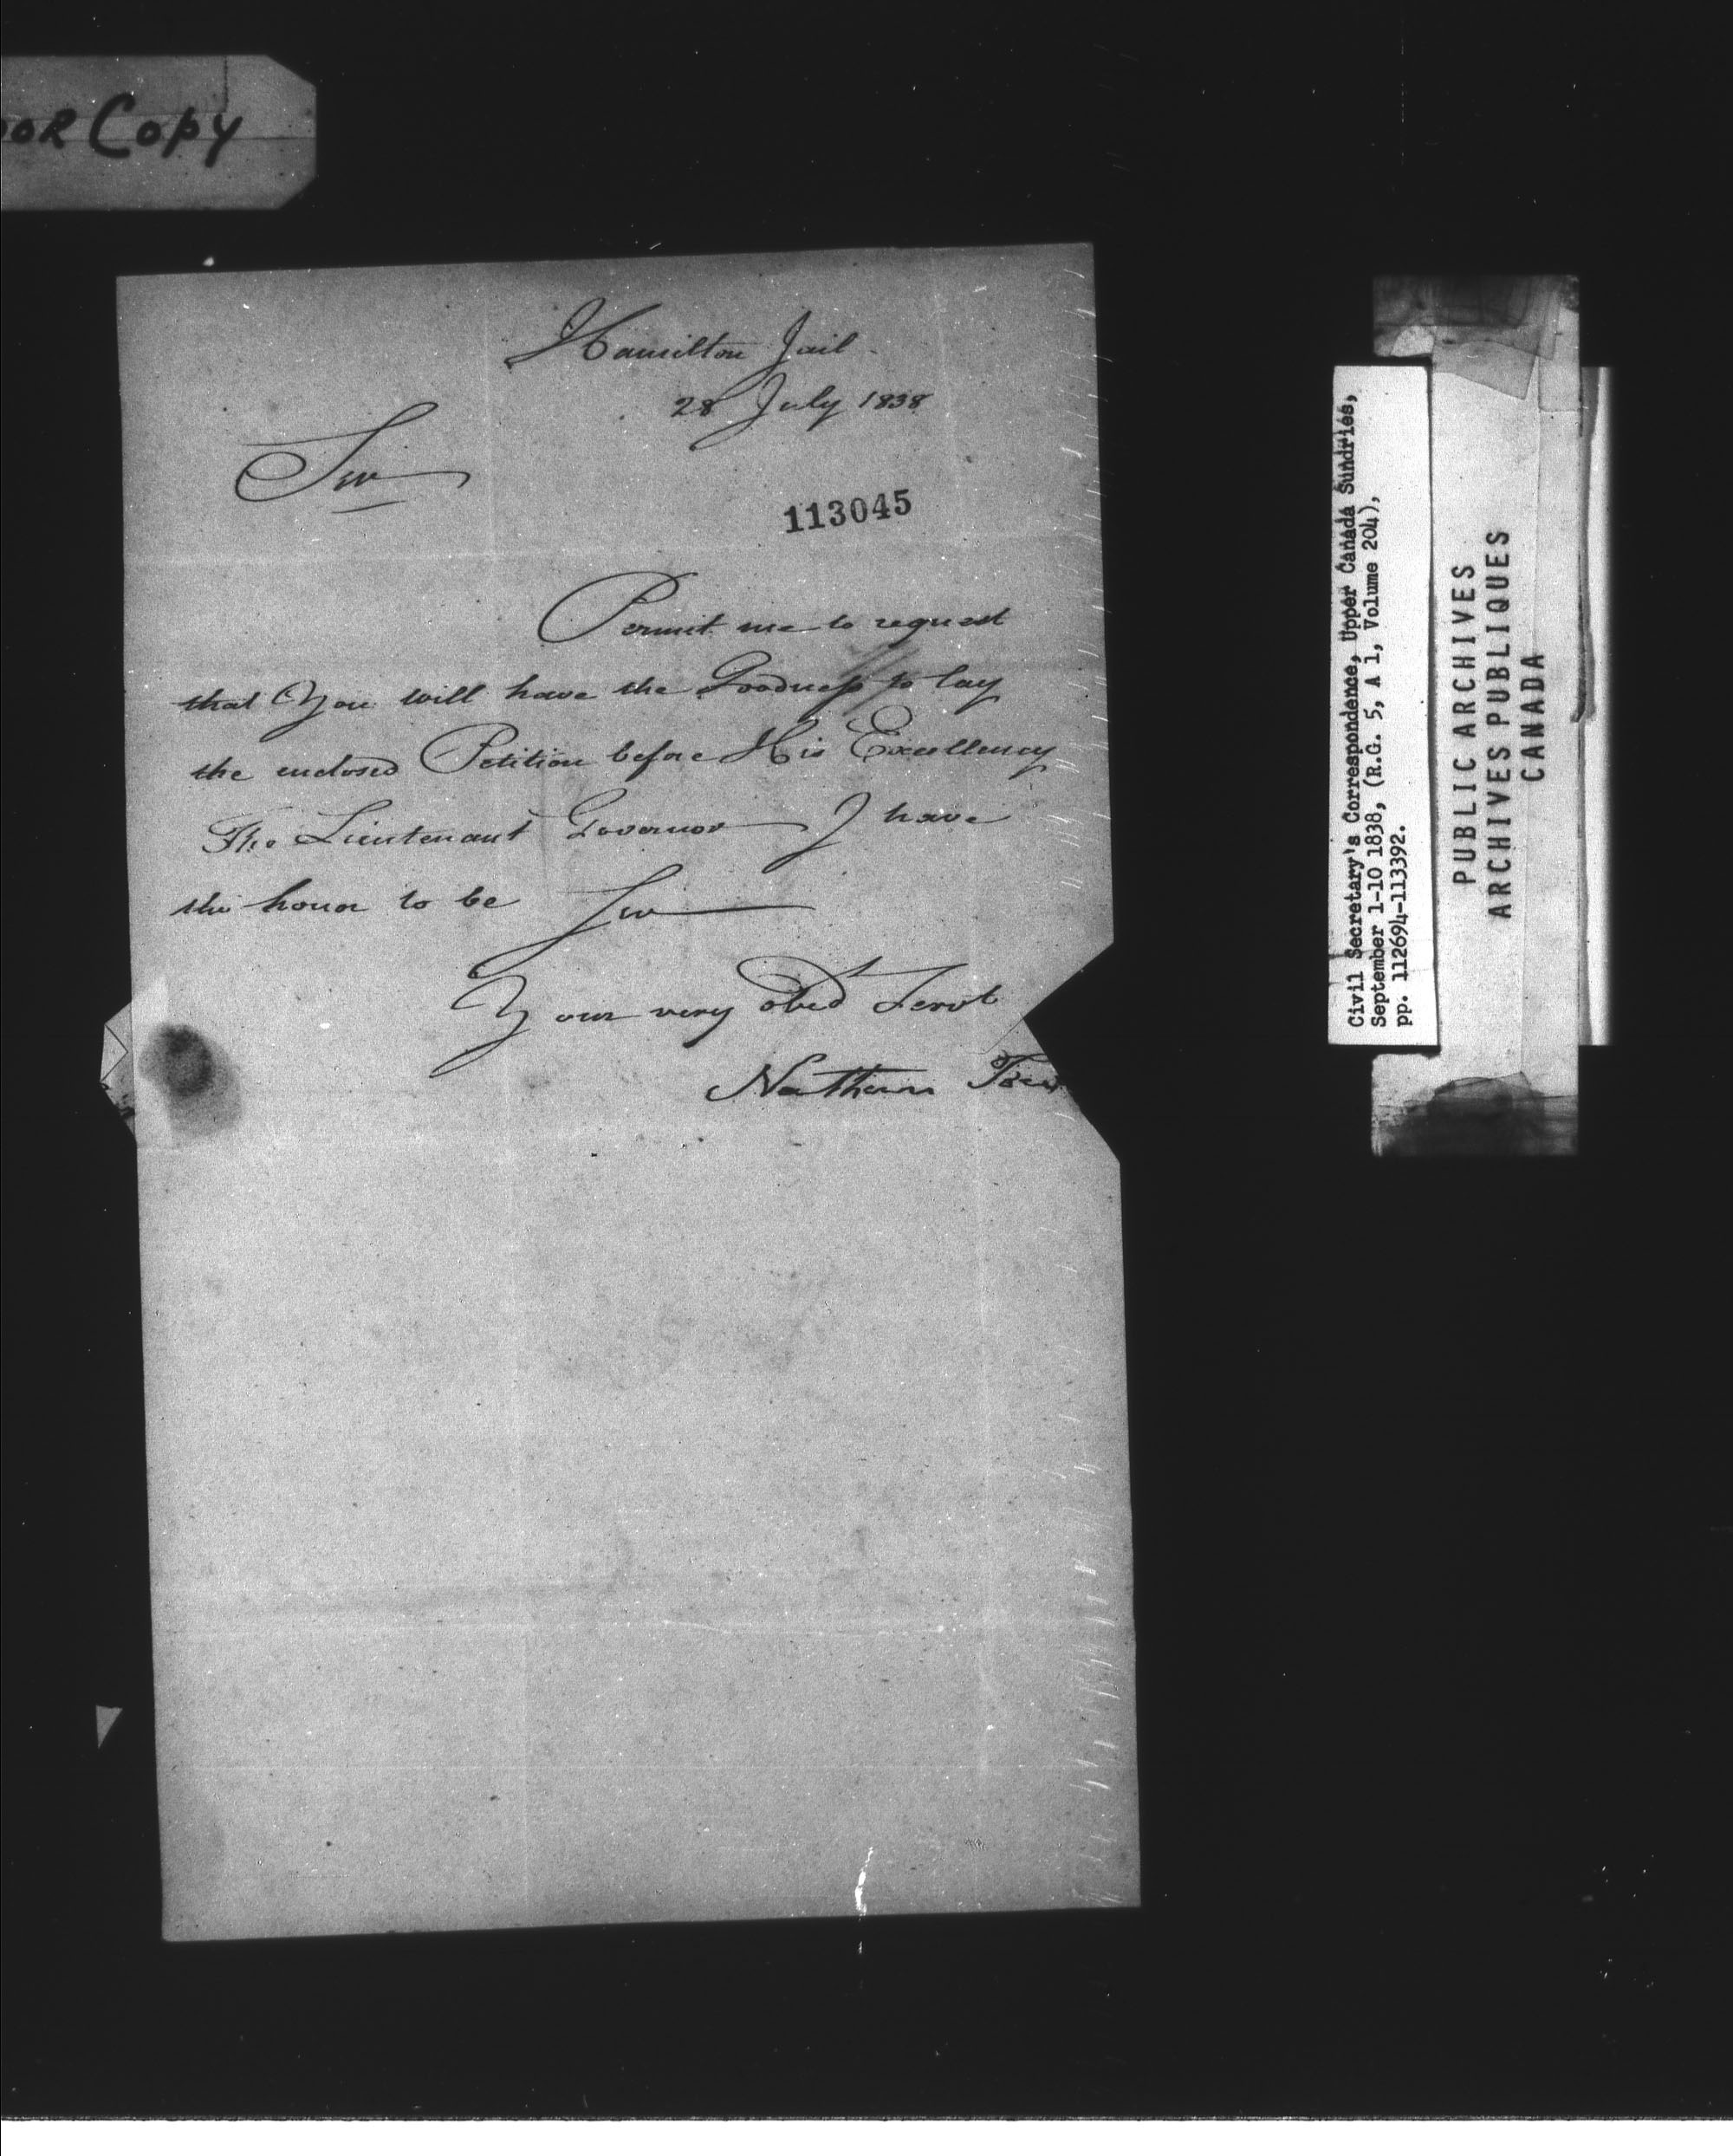 OOR Copy
Hamilton Jail
28 July 1838
Sir
113045
Permit me to request
that You will have the Goodness to lay
the enclosed Petition before His Excellency
The Lieutenant Governor I have
the honor to be Sir
Your very obed Servt
Nathan
Civil Secretary's Correspondence, Upper Canada Sundries,
September 1-10 1838, (R.G. 5, A 1, Volume 204),
pp. 112694-113392.
PUBLIC ARCHIVES
ARCHIVES PUBLIQUES
CANADA